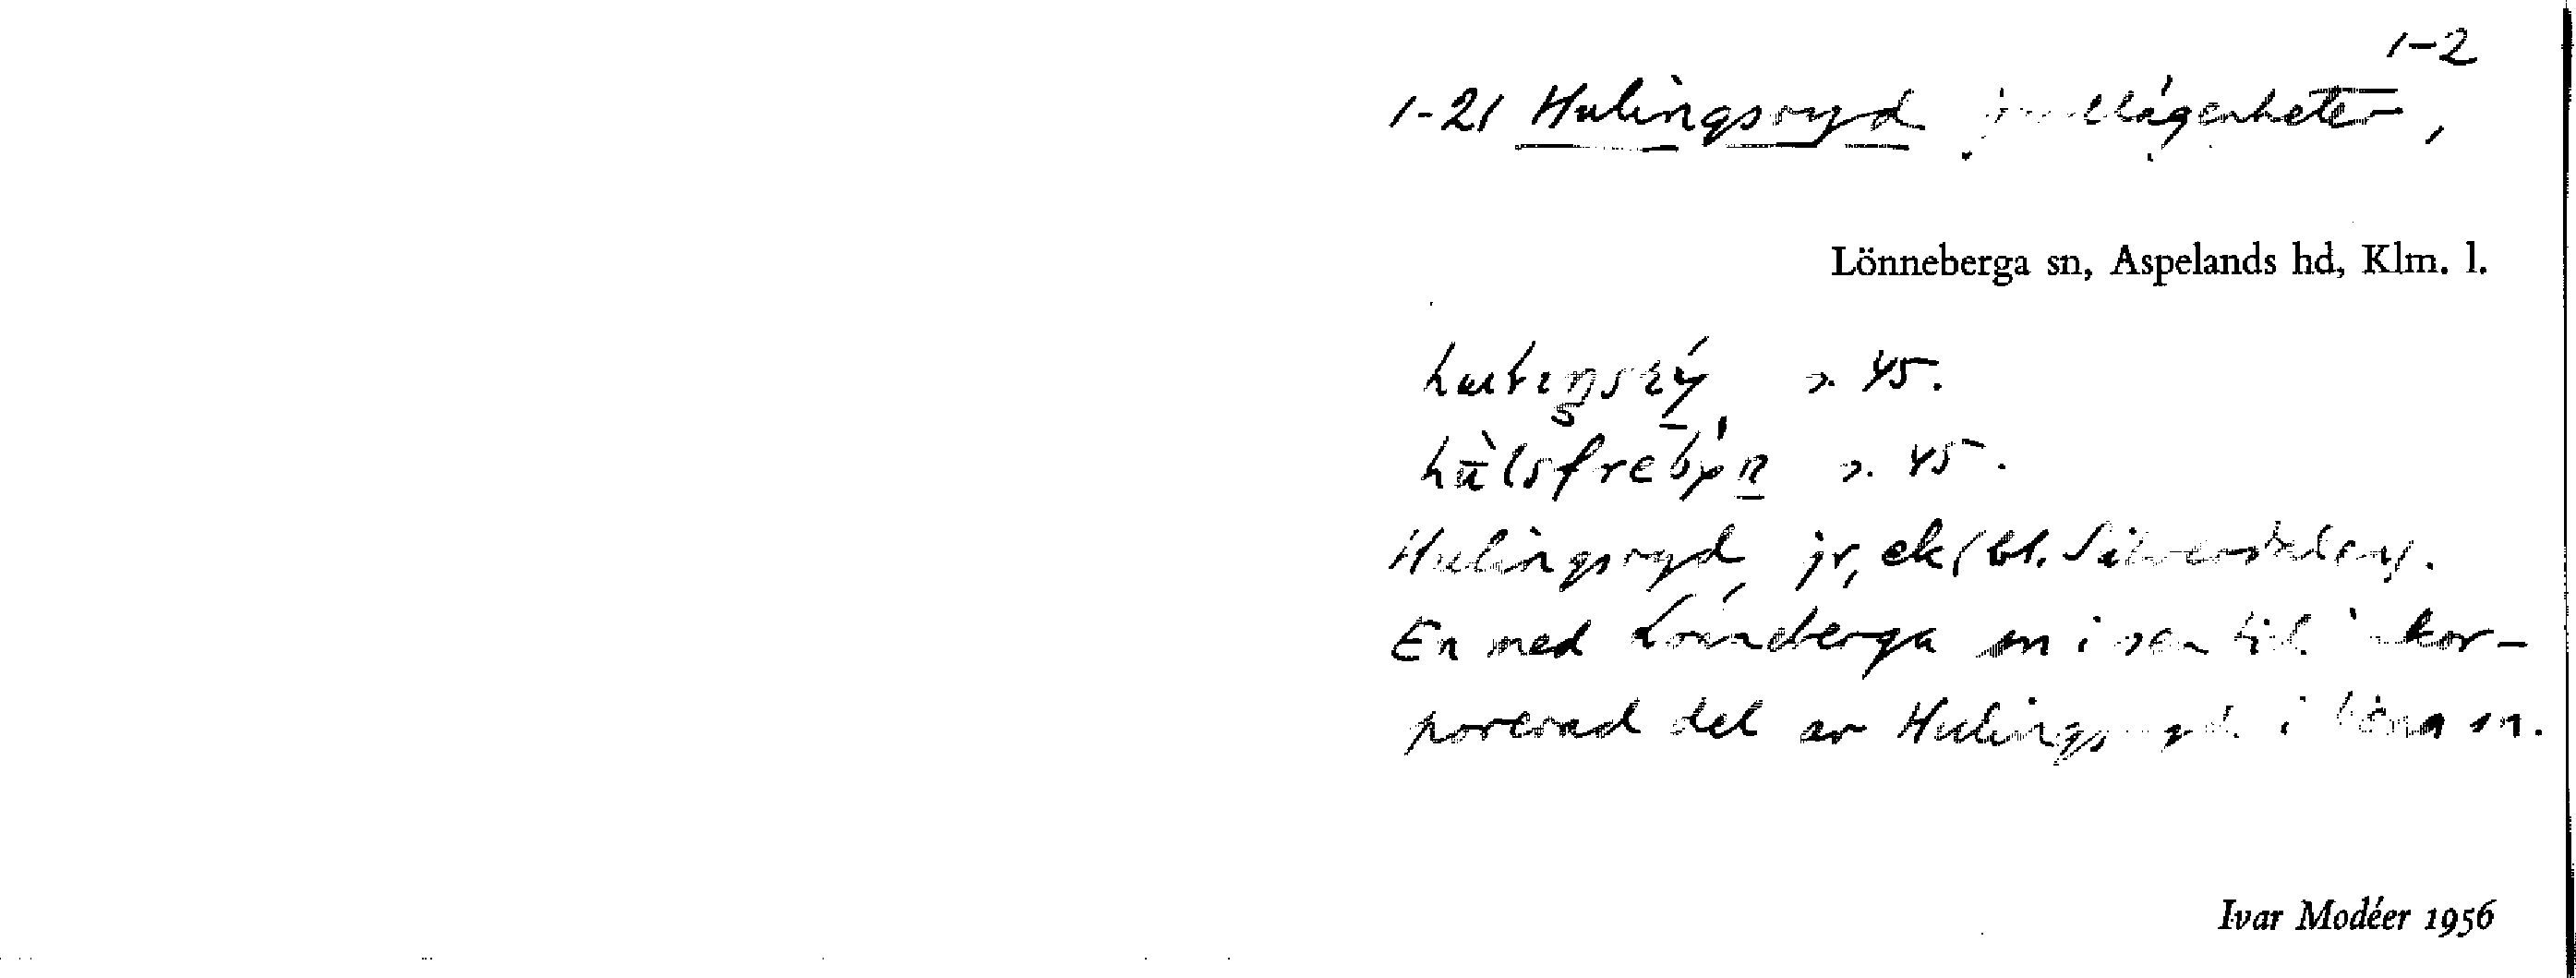 1-2
1-21 Hulingsryd lägenheter,
Lönneberga sn, Aspelands hd, Klm. l.
s. 45.
s. 45.
Hulingsryd, jr, ek (bl. Silverdalen).
En med Lönneberga sn i sen tid inkor-
porerad del av Hulingsryd i Vena sn.
Ivar Modéer 1956